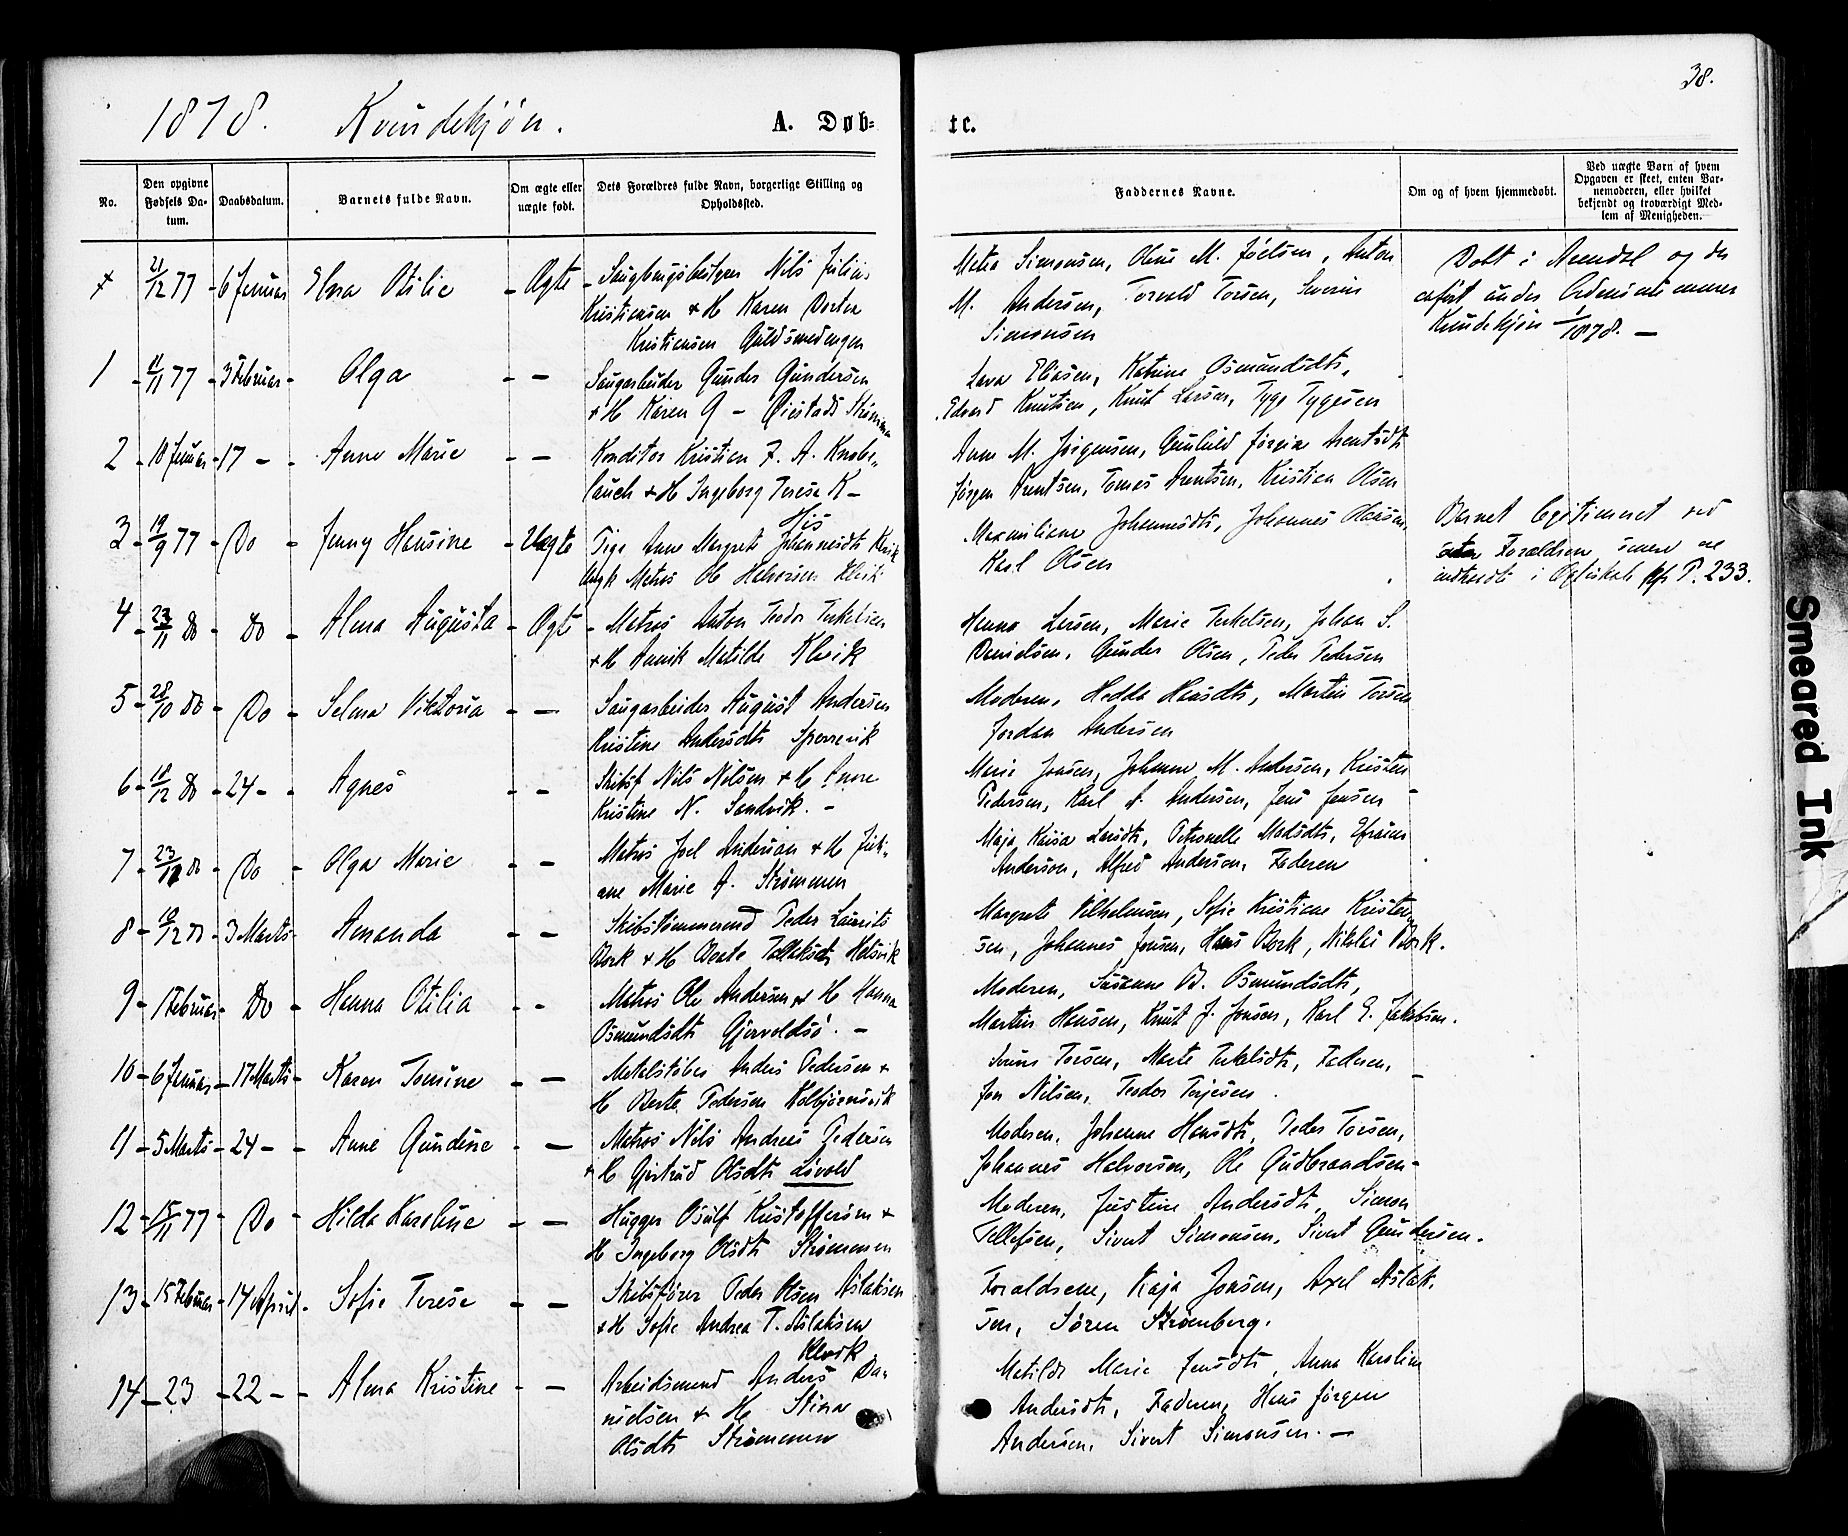 38.
1878. Kvindekjøn.
A. Døb-
te.
No.
Den opgivne Fødsels Da-
tum.
Daabsdatum.
Barnets fulde Navn.
Om ægte eller
uægte født.
Dets Forældres fulde Navn, borgerlige Stilling og
Opholdssted.
Faddernes Navne.
Om og af hvem hjemmedøbt.
Ved uægte Børn af hvem
Opgaven er skeet, enten Bar-
nemoderen, eller hvilket
bekjendt og troværdigt Med-
lem af Menigheden.
21/12 77 - 6 Januar Elna Otilie - Ægte - Nils Julius
Kristiansen & H Karen Dortea
Kristiansen Guldsmedengen
Simonsen, Oline M. Joelsen, Anton
M. Andersen, Torvald Torsen, Severin
Simonsen
Døbt i Arendal og der
anført under
Kvindekjøn 1/1878. —
1 - 11/11 77 - 3 Februar - Olga - —
Saugarbeider Gunder Gundersen
& H Karen G — Øiestads Strømmen
Lava Eliasen, Katrine Osmundsdtr,
Edvard Knutsen, Knut Larsen, Tyge Tygesen
2 - 10 Januar - 17 - - Anne Marie - —
Konditor Kristian F. A. Knobe-
lauch & H Ingeborg Terese K —
His
Anne M. Jørgensen, Gunhild Jørgine Arentsdtr
Jørgen Arentsen, Tomas Arentsen, Kristian Olsen
3 - 19/9 77 - Do - Jenny Hansine - Uægte
Pige Anne Margrete Johannesdtr Klevik
Ungk Matros Ole Halvorsen Klevik
Maximiliane Johannesdtr, Johannes Hansen,
Karl Olsen
Barnet legitimeret ved
Forældrene senere ere
indtraadt i Ægteskab P. 233.
4 - 23/11 Do - Do - Alma Augusta - Ægte
- Matros Anton Teodor Terkelsen
& H Annik Matilde Klevik
Hanna Larsen, Marie Terkelsen, Johan S.
Danielsen, Gunder Olsen, Peder Pedersen
5 - 28/10 Do - Do - Selma Viktoria - —
Saugarbeider August Andersen
Kristine Andersdtr Sperrevik
Moderen, Hedda Hansdtr, Martin Torsen
Jordan Andersen
6 - 18/12 Do - 24 - - Agnes - —
Skibsf Nils Nilsen & H Anne
Kristine N. Sandvik. -
Marie Jensen, Johanne M. Andersen, Kristen
Pedersen, Karl A. Andersen, Jens Jensen
7 - 23/12 Do - Do - Olga Marie - —
Matros Joel Anderson & H Juli-
ane Marie A. Strømmen
Maja Kaisa Larsdtr, Petronelle Madsdtr, Efraim
Anderson, Alfred Anderson, Faderen
8 - 19/12 Do - 3 Marts - Amanda - —
Skibstømmermand Peder Laurits
Bork & H Berte Tallaksen Helsvik
Margrete Vilhelmsen, Sofie Kristiane Kristen-
sen, Johannes Jensen, Hans Bork, Nikolai Bork.
9 - 1 Februar - Do - Hanna Otilia - -
Matros Ole Andersen & H Hanna
Osmundsdtr Gjervoldsø. -
Moderen, Susanne B. Osmundsdtr,
Martin Hansen, Knut J. Jonsen, Karl E. Jakobsen.
10 - 6 Januar - 17 Marts - Karen Tomine - —
Metalstøber Anders Pedersen &
H Berte Pedersen Kolbjørnsvik
Torsen, Marte Terkelsdtr, Faderen,
Jon Nilsen, Teodor Terjesen.
11 - 5 Marts - 24 - - Anne Gundine - —
Matros Nils Andreas Pedersen
& H Gjertrud Olsdtr Løvold
Moderen, Johanne Hansdtr, Peder Torsen,
Johannes Halvorsen, Ole Gudbrandsen -
12 - 15/11 77 - Do - Hilda Karoline - —
Hugger Osulf Kristoffersen &
H Ingeborg Olsdtr Strømmen
Moderen, Justine Andersdtr, Simon
Tellefsen, Sivert Simonsen, Sivert Gundersen.
13 - 15 Februar - 14 April - Sofie Terese - —
Skibsfører Peder Olsen Aslaksen
& H Sofie Andrea T. Aslaksen
Klevik
Forældrene, Kaja Jonsen, Axel Aslak-
sen, Søren Strømberg.
14 - 23 - 22 - - Alma Kristine - —
Arbeidsmand Anders Da-
nielsen & H Stina
Olsdtr Strømmen
Matilde Marie Jensdtr, Anna Karoline
Andersdtr, Faderen, Hans Jørgen
Andersen, Sivert Simonsen. —
Smeared Ink